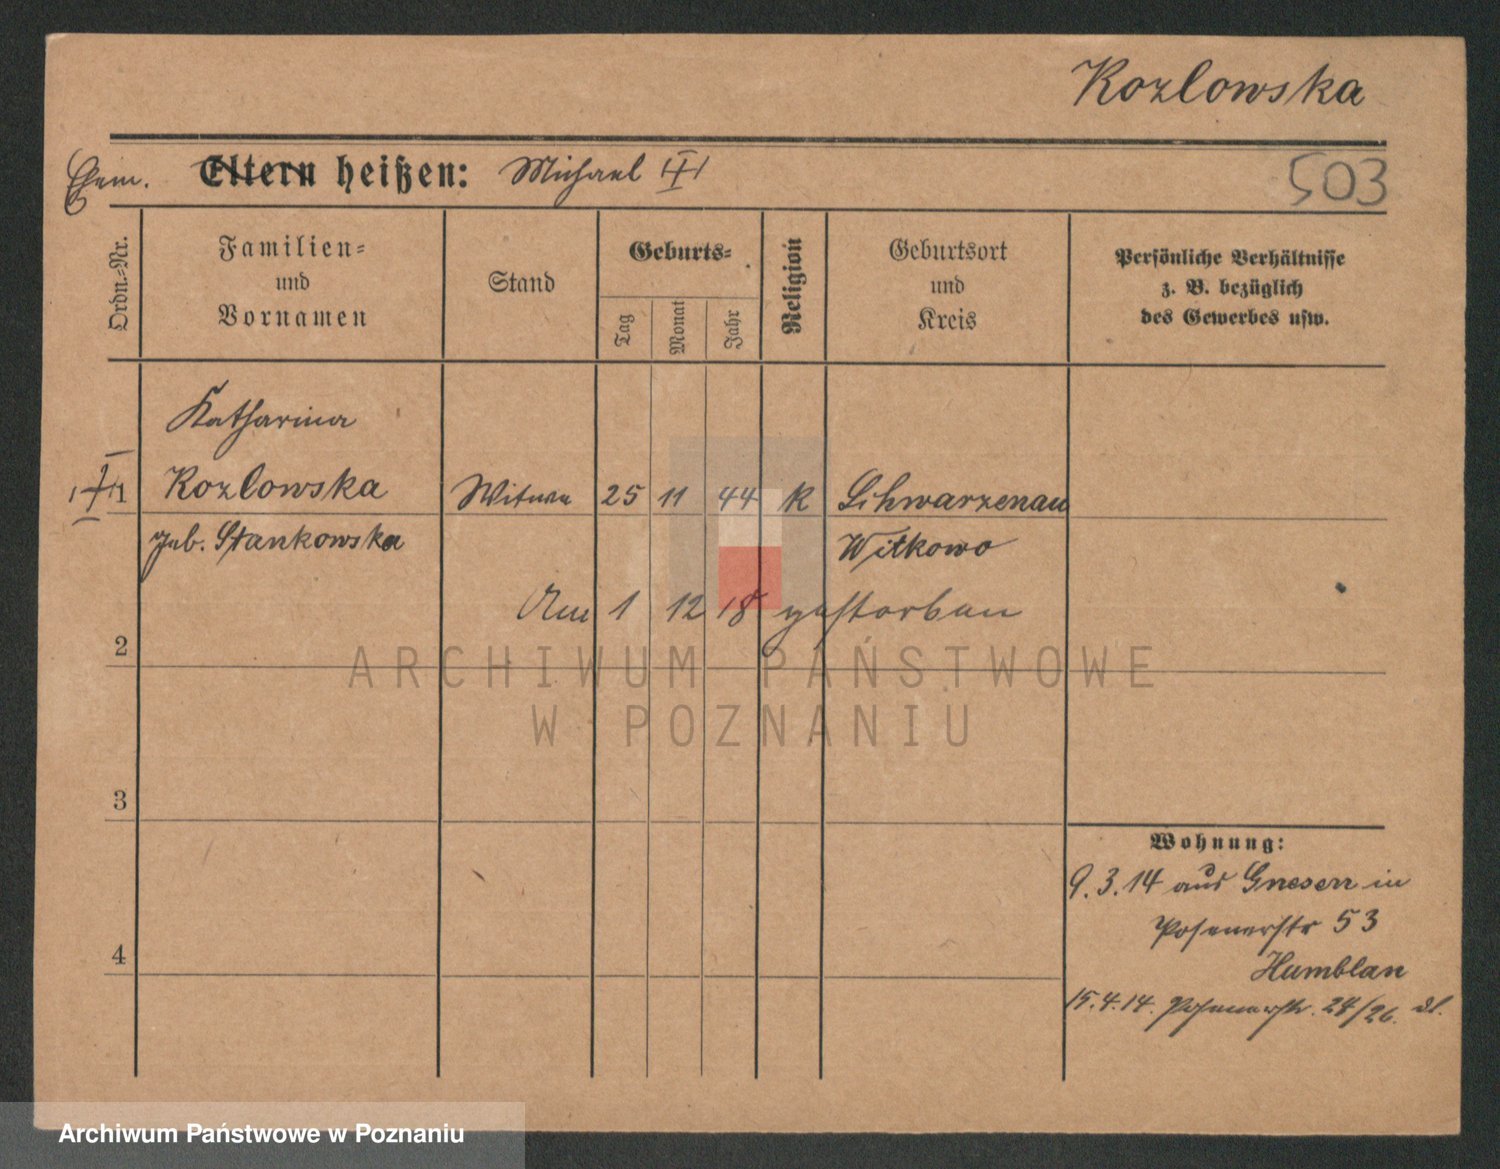 Kozlowska
Ehem. Eltern heißen: Michael
503
Ordn.-Nr.
Familien-
und
Vornamen
Stand
Geburts-
Tag
Monat
Jahr
Religion
Geburtsort
und
Kreis
Persönliche Verhältnisse
z. B. bezüglich
des Gewerbes usw.
Katharina
1 Kozlowska Witwe 25 11 44 K Schwarzenau
geb. Stankowska Witkowo
Am 1 12 18 gestorben
2
ARCHIWUM PAŃSTWOWE
W POZNANIU
3
Wohnung:
9.3.14 aus Gnesen in
Posenerstr 53
4
15.4.14. Posenerstr. 24/26.
Archiwum Państwowe w Poznaniu